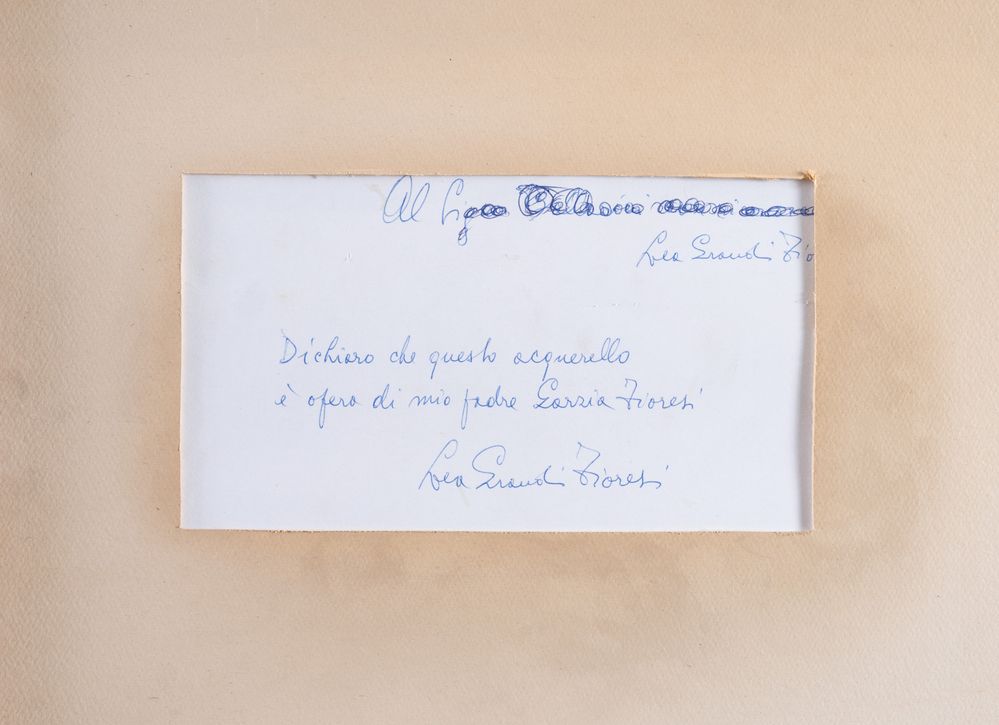 Al
Lea Grandi Fio
Dichiaro che questo acquerello
è opera di mio padre Garzia Fioresi
Lea Grandi Fioresi